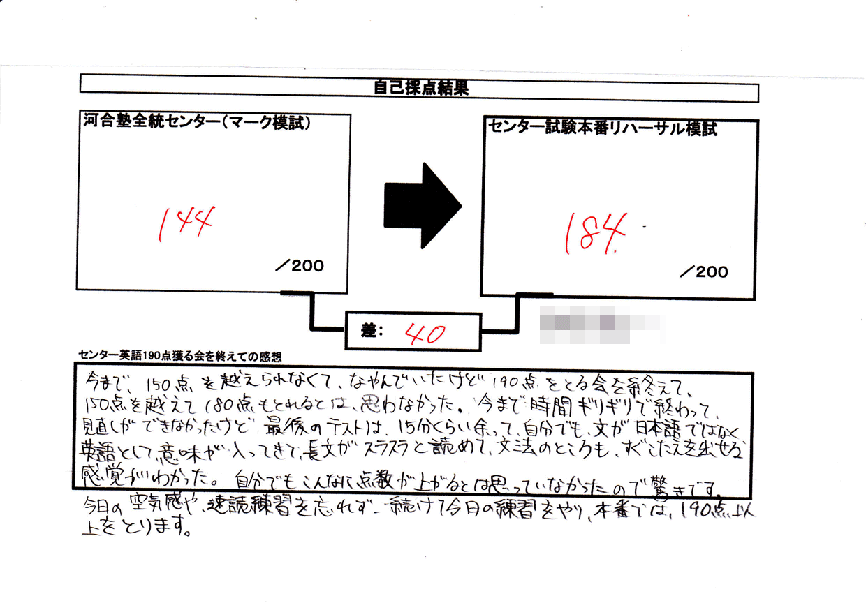 自己採点結果
河合塾全統センター(マーク模試)
144
/200
センター試験本番リハーサル模試
184
/200
差: 40
センター英語190点獲る会を終えての感想
今まで、150点を越えられなくて、なやんでいたけど190点をとる会を終えて、
150点を越えて180点もとれるとは、思わなかった。今まで時間ギリギリで終わって、
見直しができなかったけど最後のテストは、15分くらい余って、自分でも、文が日本語ではなく
英語として、意味が入ってきて、長文がスラスラと読めて、文法のところも、すぐこたえを出せる
感覚がわかった。自分でもこんなに点数が上がるとは思っていなかったので驚きです。
今日の空気感や、速読練習を忘れず、続けて今日の練習をやり、本番では、190点以
上をとります。